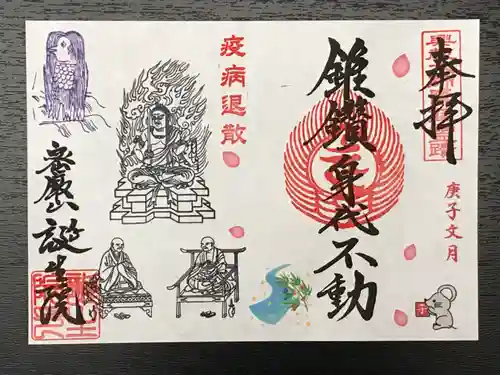 奉拝
庚子文月
子
錐鑽身代不動
疫病退散
誕生院